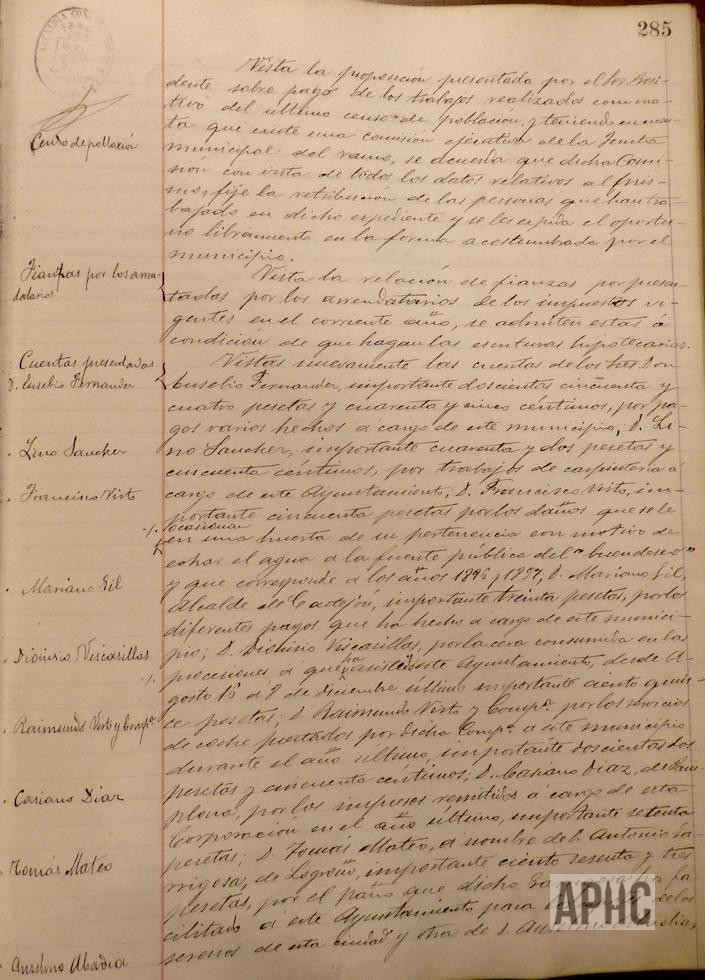 285
Vista la proposición presentada por el Sor. Presi-
dente sobre pago de los trabajos realizados con mo-
tivo del último censo de población, y teniendo en cuen-
ta que existe una comisión ejecutiva de la Junta
municipal del ramo, se acuerda que dicha Comi-
sión con vista de todos los datos relativos al mis-
mo, fije la retribución de las personas que han tra-
bajado en dicho expediente y se les expida el oportu-
no libramiento en la forma acostumbrada por el
municipio.
Censo de población
Vista la relación de fianzas por presen-
tadas por los arrendatarios de los impuestos vi-
gentes en el corriente año, se admiten estas á
condición de que hagan las escrituras hipotecarias.
Fianzas por los arren-
datarios
Vistas nuevamente las cuentas de los Sres. Don
Eusebio Fernander, importante doscientas cincuenta y
cuatro pesetas y cuarenta y cinco céntimos, por pa-
gos varios hechos a cargo de este municipio; D. Li-
no Sancher, importante cuarenta y dos pesetas y
cincuenta céntimos, por trabajos de carpintería á
cargo de este Ayuntamiento; D. Francisco Virto, im-
portante cincuenta pesetas por los daños que se le
ocasionan
en una huerta de su pertenencia con motivo de
echar el agua a la fuente publica del "buen deseo"
y que corresponde a los años 1896 y 1897, D. Mariano Gil,
Alcalde de Castejón, importante treinta pesetas, por los
diferentes pagos que ha hecho a cargo de este munici-
pio; D. Dionisio Viscasillas, por la cera consumida en las
procesiones á que ha asistido este Ayuntamiento, desde A-
gosto 16 á 8 de Diciembre último importante ciento quin-
ce pesetas; D. Raimundo Virto y Compª. por los servicios
de coche prestados por dicha Compª. á este municipio
durante el año ultimo, importante doscientas dos
pesetas y cincuenta céntimos; D. Casiano Diaz, de Pam-
plona, por los impresos remitidos á cargo de esta
Corporación en el año último, importante setenta
pesetas; D. Tomás Mateo, á nombre de D. Antonio Ga-
rrigosa, de Logroño, importante ciento sesenta y tres
pesetas, por el paño que dicho Garrigosa ha fa-
cilitado á este Ayuntamiento para
serenos de esta ciudad y otra de D. Anselmo Abadia,
Cuentas presentadas
D. Eusebio Fernander
Lino Sancher
Francisco Virto
Mariano Gil
Dionisio Viscasillas
Raimundo Virto y Compª
Casiano Diaz
Tomás Mateo
Anselmo Abadia
APHC